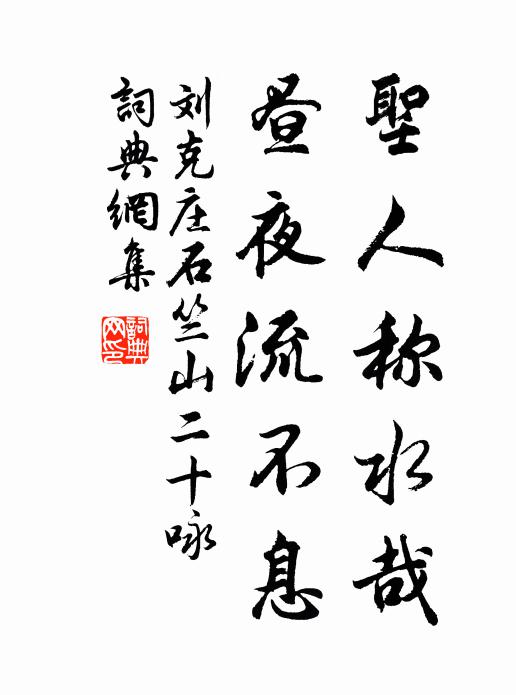 聖人称水哉
昼夜流不息
刘克庄石竺山二十咏
詞典網集
詞典网印